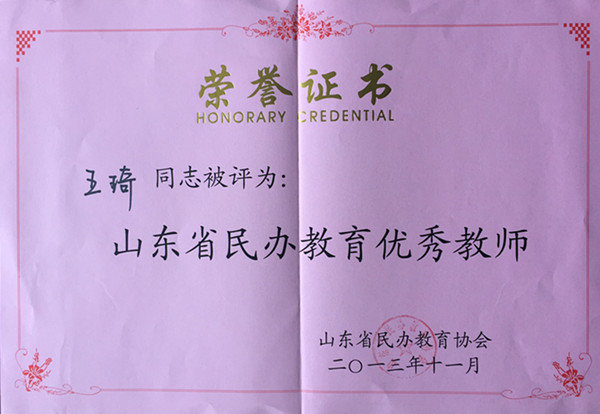 荣誉证书
HONORARY CREDENTIAL
王琦 同志被评为：
山东省民办教育优秀教师
山东省民办教育协会
二〇一三年十一月